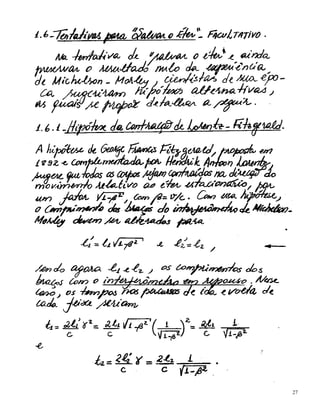 1.6-Tentativas para "Salvar o Éter" - FACULTATIVO.
Na tentativa de "salvar o éter" e ainda
preservar o resultado nulo da experiência
de Michelson - Morley, cientistas de sua épo-
ca sugeriram hipóteses alternativas,
as quais se propõe detalhar a seguir.
1.6.1-Hipótese da Contração de Lorentz - Fitzgerald.
A hipótese de George Francis Fitzgerald, proposta em
1892 e complementada por Hendrik Antoon Lorentz,
sugere que todos os corpos sejam contraídos na direção do
movimento relativo ao éter estacionário, por
um fator √1-β², com β=v/c. Com essa hipótese,
o comprimento dos braços do interferômetro de Michelson-
Morley devem ser alterados para
ℓ₁' = ℓ₁√1-β² e ℓ₂' = ℓ₂ ,
sendo agora ℓ₁ e ℓ₂, os comprimentos dos
braços com o interferômetro em repouso. Nesse
caso, os tempos nos percursos de ida e volta de
cada feixe seriam
t₁ = 2ℓ₁'/c γ² = 2ℓ₁/c √1-β² (1/√1-β²)² = 2ℓ₁/c 1/√1-β²
e
t₂ = 2ℓ₂'/c γ = 2ℓ₂/c 1/√1-β² .
27